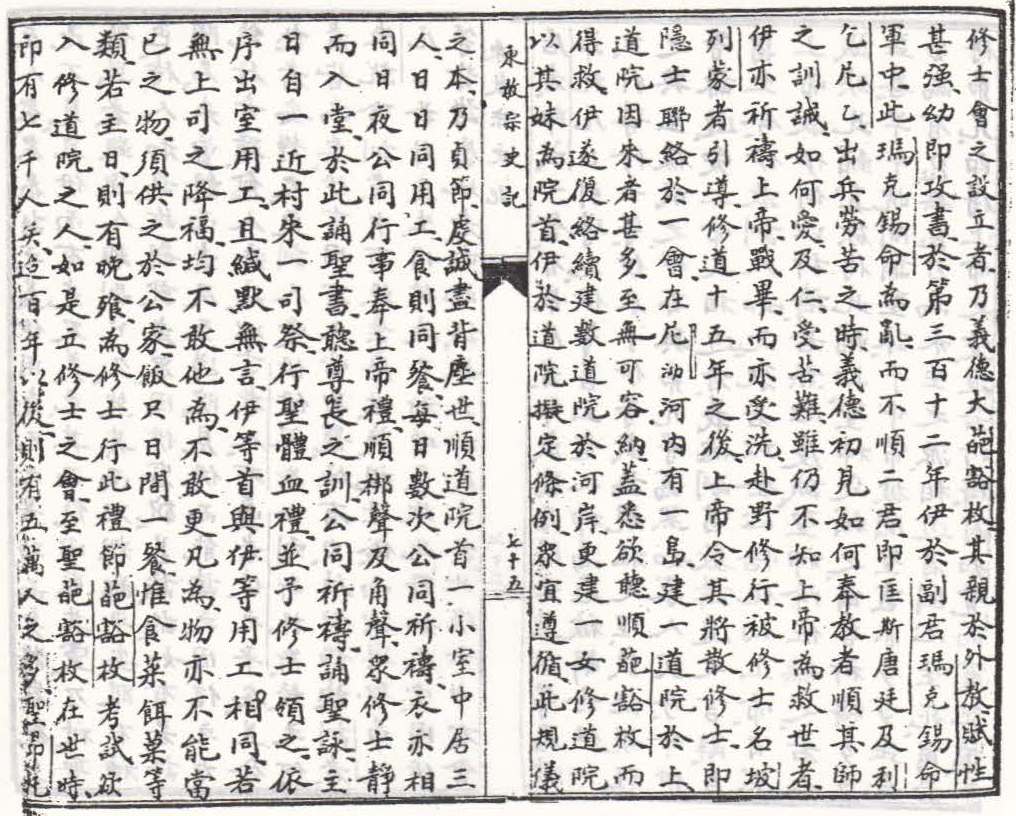 修士會之設立者、乃義德大葩豁枚、其親於外教、賦性
甚强、幼即攻書、於第三百十二年、伊於副君瑪克錫命
軍中、此瑪克錫命為亂、而不順二君、即匡斯唐廷及利
乞尼乙、出兵勞苦之時、義德初見如何奉教者順其師
之訓誡、如何愛及仁、受苦難、雖仍不知上帝為救世者、
伊亦祈禱上帝、戰畢、而亦受洗、赴野修行、被修士名坡
列蒙者引導、修道十五年之後、上帝令其將散修士、即
隱士聯絡於一會、在尼泐河內有一島、建一道院、於上
道院因來者甚多、至無可容納、蓋悉欲聽順葩豁枚而
得救、伊遂復絡續建數道院於河岸、更建一女修道院
以其妹為院首、伊於道院擬定條例、衆宜遵循、此規儀
東教宗史記
七十五
之本、乃貞節、虔誠盡背塵世、順道院首、一小室中居三
人、日日同用工、食則同餐、每日數次公同祈禱、衣亦相
同、日夜公同行事奉上帝禮、順梆聲及角聲、衆修士靜
而入堂、於此誦聖書、聽尊長之訓、公同祈禱、誦聖詠、主
日自一近村來一司祭、行聖體血禮、並予修士領之、依
序出室用工、且緘默無言、伊等首與伊等用工相同、若
無上司之降福、均不敢他為、不敢更凡為、物亦不能當
已之物、須供之於公家、飯只日間一餐、惟食菜餌菓等
類、若主日、則有晚飧、為修士行此禮節、葩豁枚考試欲
入修道院之人、如是立修士之會、至聖葩豁枚在世時、
即有七千人矣、迨百年以後、則有五萬人之多、聖昂托